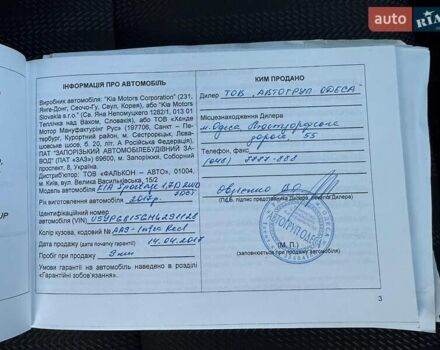 AUTO RIA
ІНФОРМАЦІЯ ПРО АВТОМОБІЛЬ
Виробник автомобіля: "Kia Motors Corporation" (231,
Янге-Донг, Сеочо-Гу, Сеул, Корея), або "Kia Motors
Slovakia s.r.o." (Св. Яна Непомуцкего 1282/1, 013 01
Теплічка над Вахом, Словакія), або ТОВ «Хенде
Мотор Мануфактуринг Рус» (197706, Санкт – Пе-
тербург, Курортний район, м. Сестрорецьк, Лева-
шовське шосе, б. 20, літ. А Російська Федерація).
ПАТ "ЗАПОРІЗЬКИЙ АВТОМОБІЛЕБУДІВНИЙ ЗА-
ВОД" (ПАТ «ЗАЗ») 69600, м. Запоріжжя, Соборний
проспект, 8, Україна.
Імпортер: ТОВ «ФАЛЬКОН – АВТО», 01004,
м. Київ, вул. Велика Васильківська, 15/2
Модель автомобіля KIA Sportage 1,7D 2WD
Рік виготовлення автомобіля 2017р.
Ідентифікаційний номер
автомобіля (VIN)
Колір кузова, кодовий №
Дата продажу (дата початку гарантії) 14.04.2017
Пробіг при продажу 9 км
Умови гарантії на автомобіль наведено в розділі
«Гарантійні зобов'язання».
КИМ ПРОДАНО
Дилер ТОВ „АВТОГРУП ОДЕСА"
Місцезнаходження Дилера
м. Одеса
дорога, 55
Телефон, факс
(048) 7777-888
(П.І.Б. підпис представника Дилера, печатка Дилера)
(М. П.)
(заповнюється при продажу автомобіля)
3